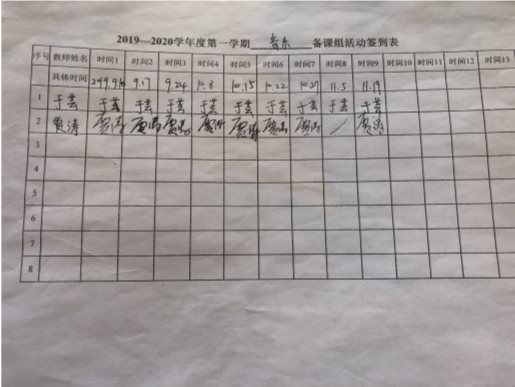 2019—2020学年度第一学期 音乐 备课组活动签到表
序号 教师姓名 时间1 时间2 时间3 时间4 时间5 时间6 时间7 时间8 时间9 时间10 时间11 时间12 时间13
具体时间 2019.9.10 9.17 9.24 10.8 10.15 10.22 10.29 11.5 11.19
1 于芸 于芸 于芸 于芸 于芸 于芸 于芸 于芸 于芸 于芸
2 贾涛 贾涛 贾涛 贾涛 贾涛 贾涛 贾涛 贾涛 / 贾涛
3
4
5
6
7
8